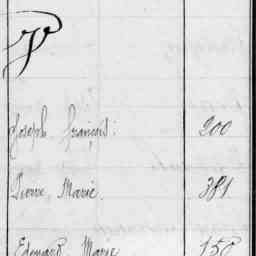 P
Joseph François. 200
Pierre Marie. 381
Edouard Marie 158